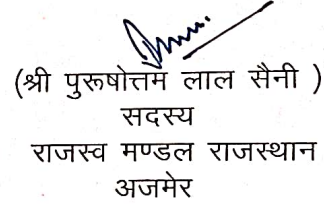 (श्री पुरूषोत्तम लाल सैनी )
सदस्य
राजस्व मण्डल राजस्थान
अजमेर